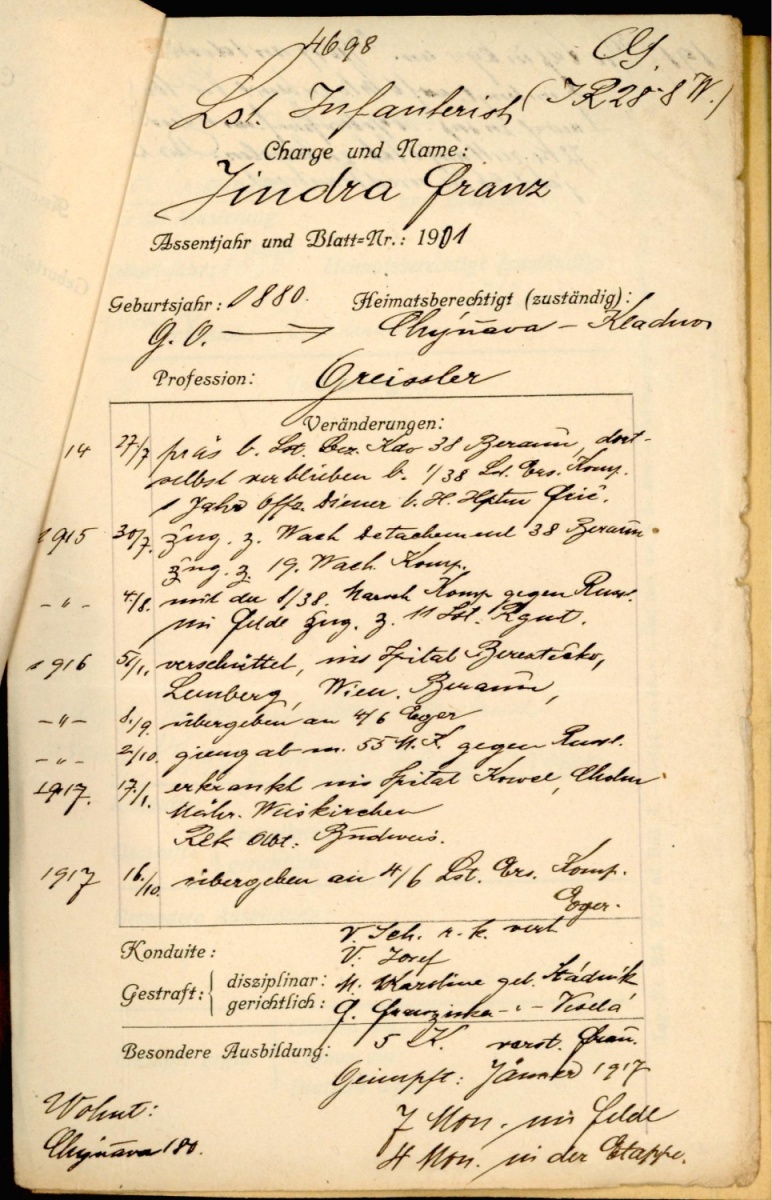 4698
Lst. Infanterist (IR 28-8 W.)
Charge und Name:
Jindra Franz
Assentjahr und Blatt=Nr.: 1901
Geburtsjahr: 1880. Heimatsberechtigt (zuständig):
G. O. Chyňava - Kladno
Profession: Greissler
Veränderungen:
14 27/7 präs b. Lst. Bez. Kdo 38 Beraun, dort-
selbst verblieben b. 1/38 Lst. Ers. Komp.
1 Jahr Offz. Diener b. H. Hptm
1915 30/7. Zug. z. Wach Detachement 38 Beraun
Zug. z. 19. Wach Komp.
- " - 4./8. mit der 8/38. Marsch Komp gegen Russl.
im Felde Zug. z. 11 Lst. Rgmt.
1916 5./1. verschüttet, ins Spital Beresteczko,
Lemberg, Wien, Beraun,
- " - 8./9 übergeben an 4/6 Eger
- " - 2/10. gieng ab m. 55 M.K. gegen Russl.
1917. 17/1. erkrankt ins Spital Kowel, Cholm
Mähr. Weiskirchen
Rek Abt. Budweis.
1917 16./10. übergeben an 4/6 Lst. Ers. Komp.
Eger.
Konduite: V. Sch. r. k. verh
V. Josef
Gestraft: disziplinar: M. Karoline geb. Hádník
gerichtlich: G. Franziska - " - Veselá
Besondere Ausbildung: 5 K. verst. Frau.
Geimpft: Jänner 1917
Wohnt: 7 Mon. im Felde
Chyňava 180. 4 Mon. in der Etappe.